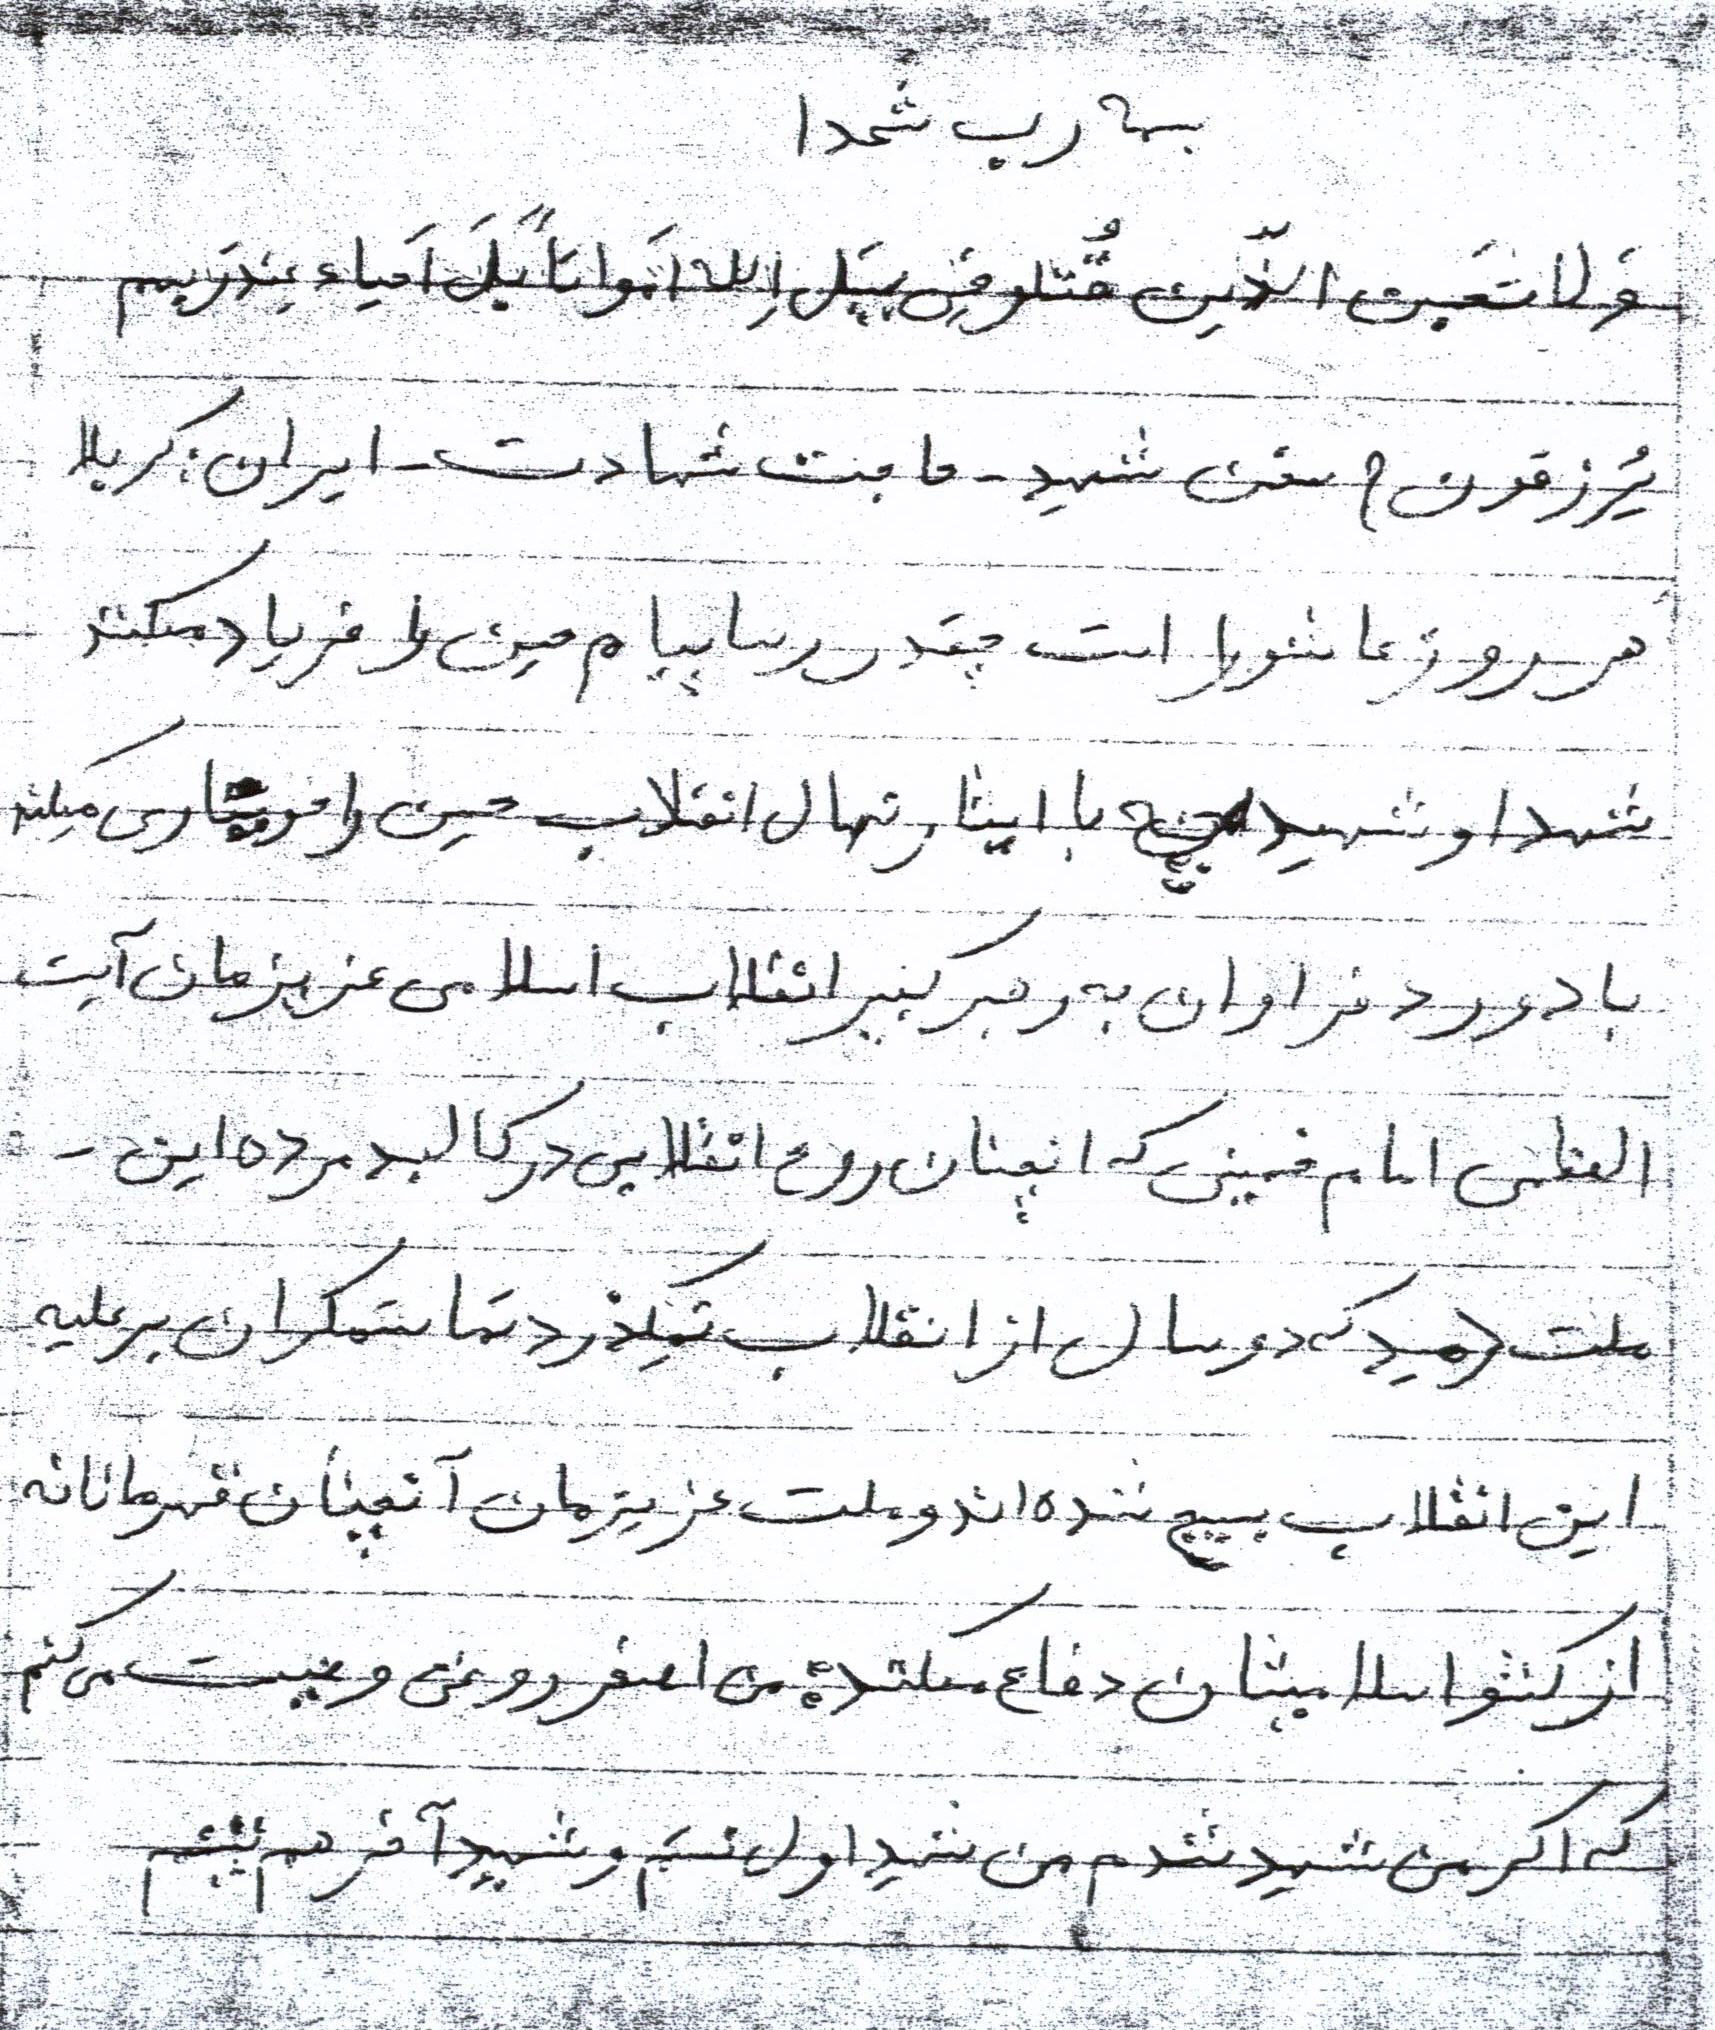 بسمه رب شهدا
وَلا تَحسبن الذّین قُتلو فی سبیل اِلله اَمَواتاً بَلَ اَحیاء عِندَرَبهم
یُرزقون سخن شهید - ما جنت شهادت - ایران: کربلا
هر روز عاشورا است چقدر رسا پیام حسین را فریاد میکنند
شهدا و شهید با ایثار نهال انقلاب حسین را میکنند
با درود فراوان به رهبر کبیر انقلاب اسلامی عزیزمان آیت
العظمی امام خمینی که انچنان روح انقلابی در کالبد مرده این -
ملت دمید که دو سال از انقلاب نمیگذرد تما ستمگران بر علیه
این انقلاب بسیج شده اند و ملت عزیزمان آنچنان قهرمانانه
از کشور اسلامیشان دفاع میکنند من اصغر روغنی وصیت می کنم
که اگر من شهید شدم من شهید اول نیستم و شهید آخر هم نیستم